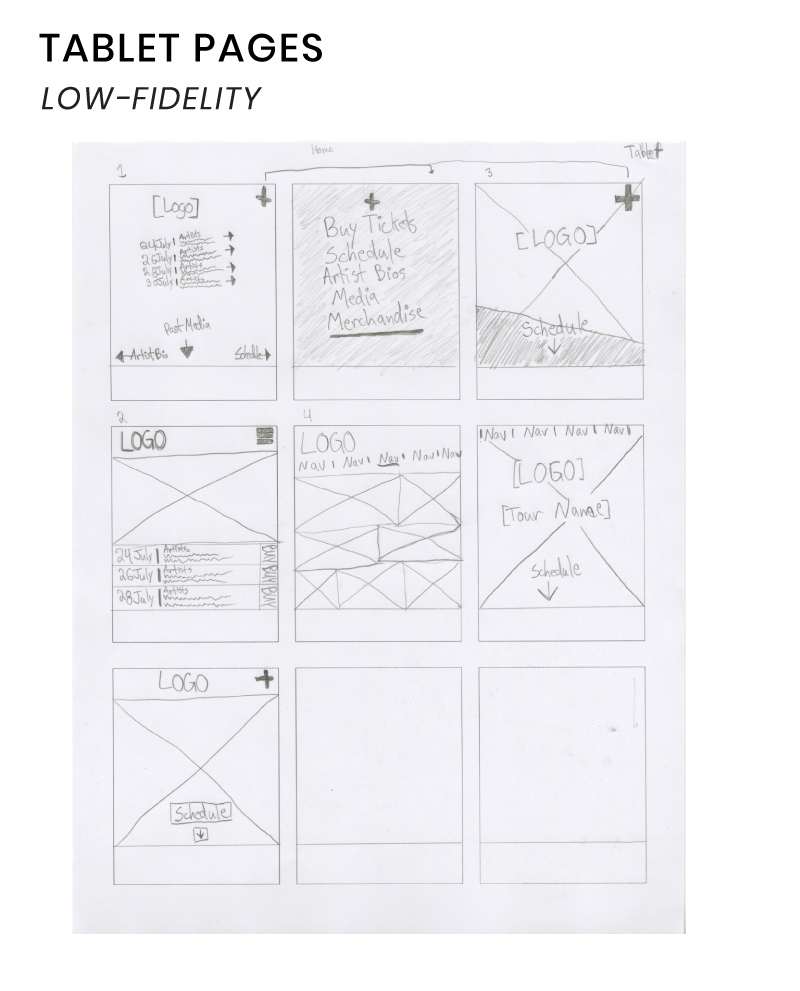 TABLET PAGES
LOW-FIDELITY
Home
Tablet
1
[Logo]
24July | Artists
25July | Artists
28July | Artists
30July | Artists
Past Media
Artist Bio
Schedule
Buy Tickets
Schedule
Artist Bios
Media
Merchandise
3
[LOGO]
Schedule
2
LOGO
24July | Artists
BUY
26July | Artists
BUY
28July | Artists
BUY
4
LOGO
Nav | Nav | Nav | Nav | Nav
| Nav | Nav | Nav | Nav |
[LOGO]
[Tour Name]
Schedule
LOGO
Schedule